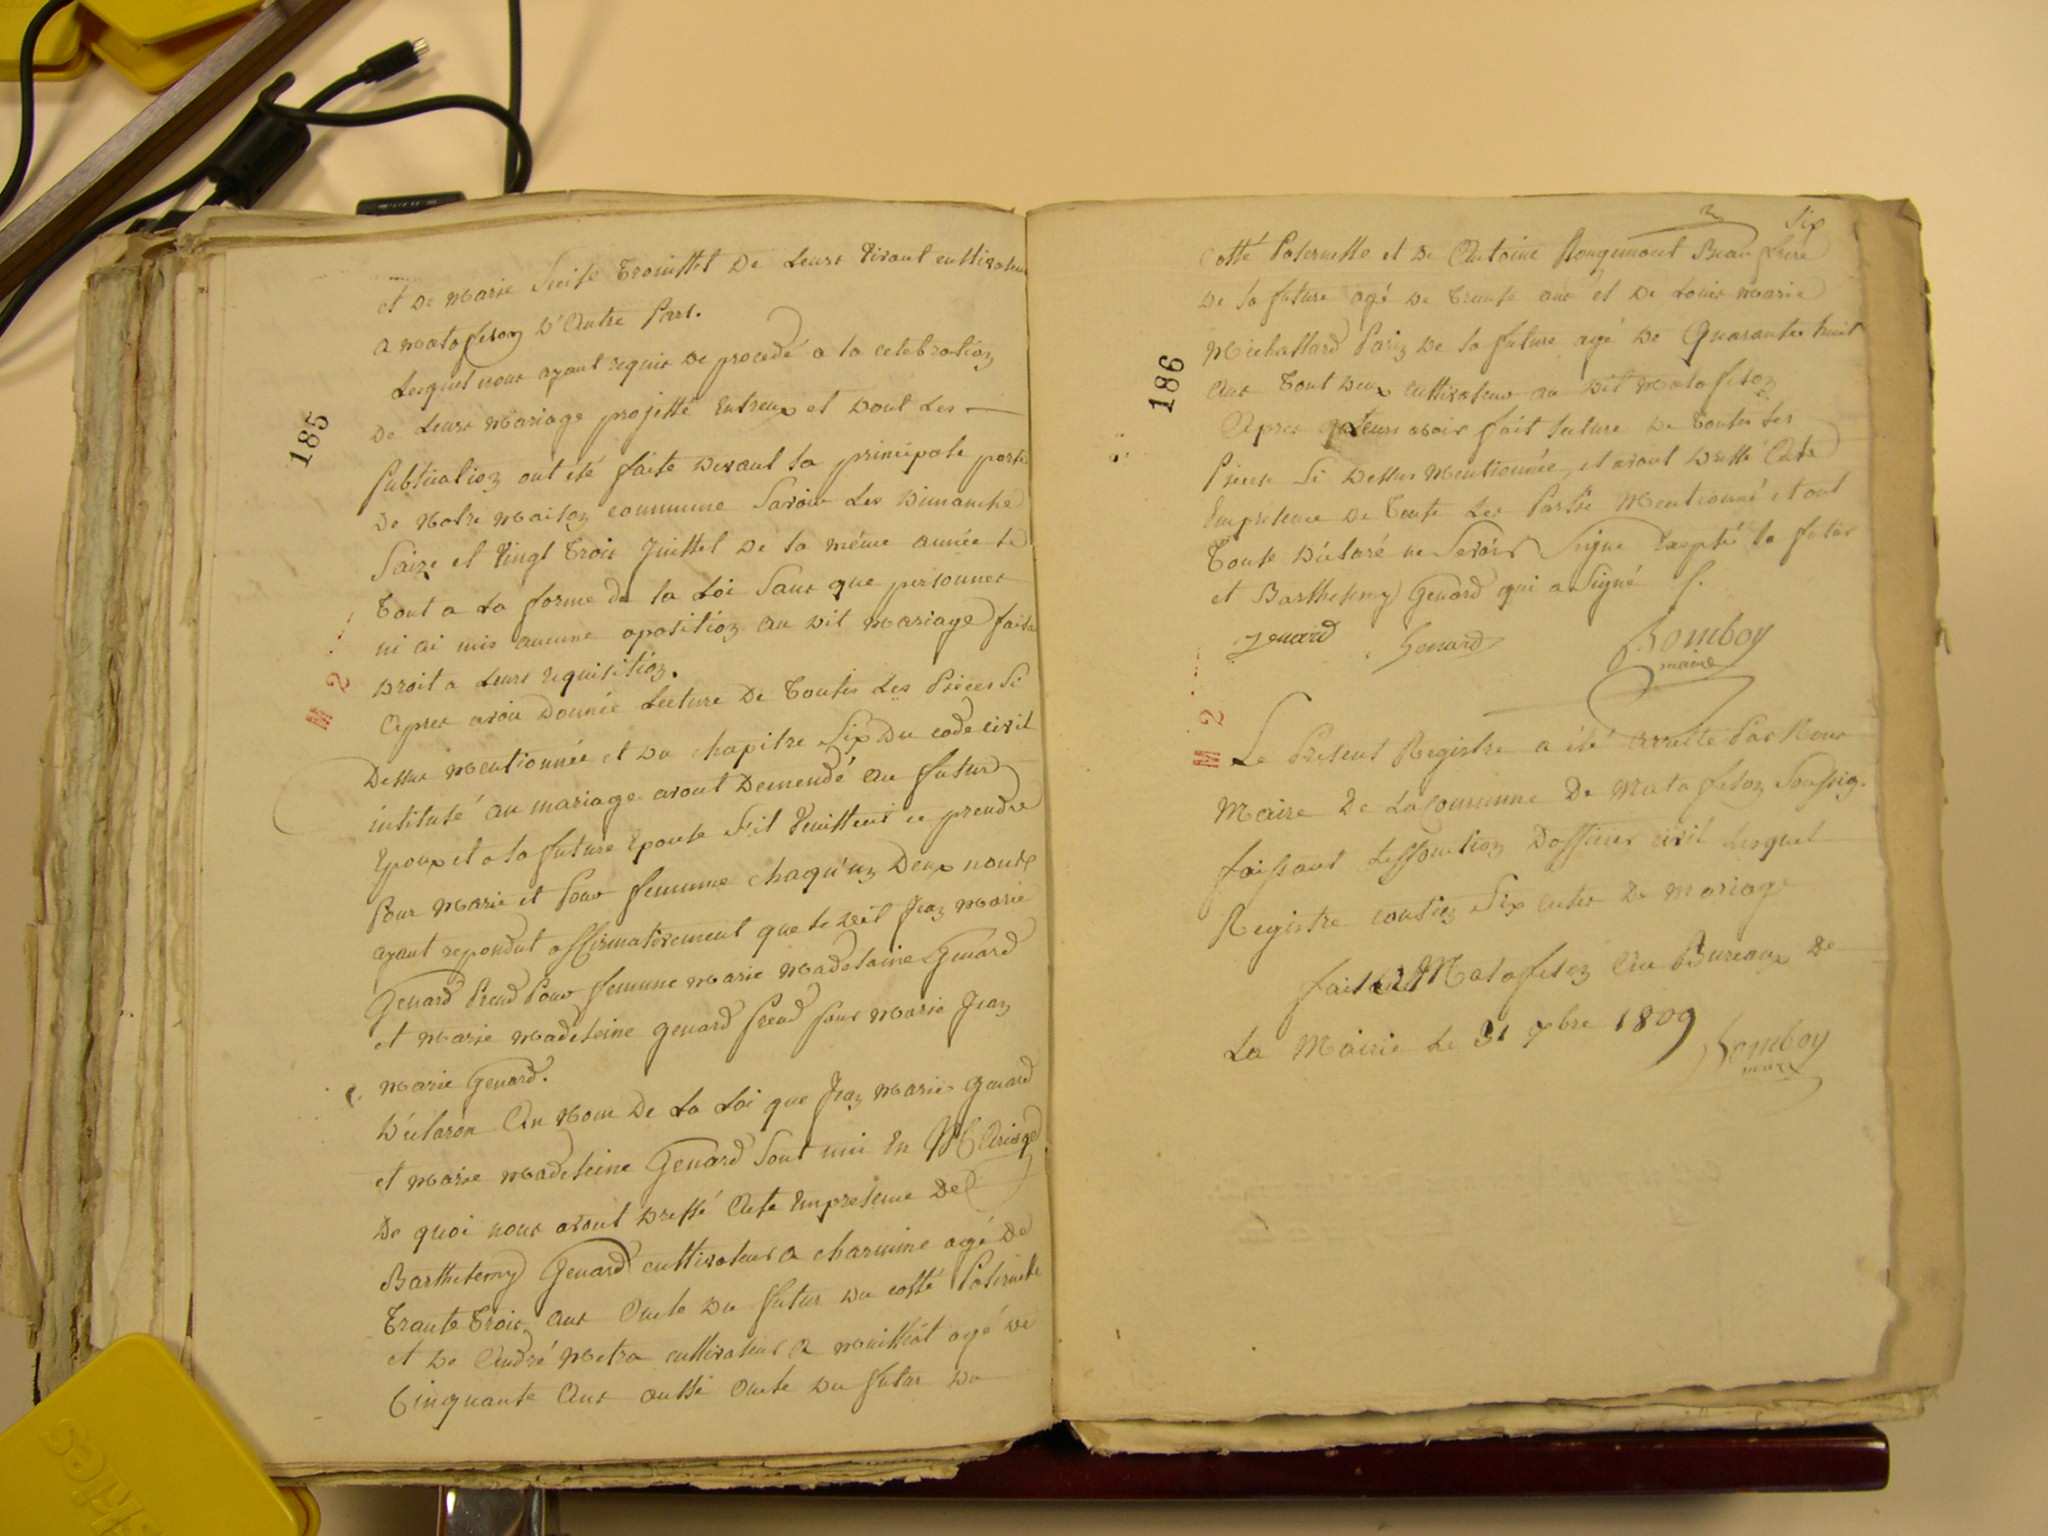 185
et De marie Trouillet De Leurs vivant cultivateur
a matafelon D'Autre Part.
Lesquel nous ayant requis De procedé a la celebration
De Leurs mariage projetté Entreux et Dont Les
Publication ont été faite Devant la principale porte
De Notre maison commune Savoir Les Dimanche
Saize et Vingt Trois Juillet De la même année le
Tout a La forme de la Loi Sans que personnes
ni ai mis aucune oposition au dit mariage faisant
Droit a Leurs requisition.
Apres avoir Donnée Lecture De Toutes Les Pièces Si
Dessus mentionnée et Du chapitre Six Du code civil
intitulé au mariage avont Demendé au futur
Epoux et a la future Epouse S'il Veuilleut ce prendre
Pour marie et Pour femme chaqu'un Deux nous
ayant repondut affirmativement que le Dit Jean marie
Genard Prend Pour femme marie madelaine Genard
et marie madeleine genard Prend Pour marie Jean
marie Genard.
Déclaron Au Nom De La Loi que Jean marie genard
et marie madeleine Genard Sont uni En Mariage
De quoi nous avont Dressé Acte Empresence De
Barthelemy Genard cultivateur a charmine agé De
Trante Trois ans Oncle Du futur Du cotté Paternelle
et De André Metra cultivateur a agé De
Cinquante Ans aussi Oncle Du futur Du
M 2
186
Six
cotté Paternelle et De Antoine Rougemont Beau frere
De la future agé De Trante ans et De Louis marie
Michallard Parin De la future agé De Quarante huit
ans Tout Deux cultivateur au Dit matafelon
Apres Leurs avoir fait lecture De Toutes Les
Pièces Si Dessus Mentionnée, et avont Dressé Acte
Empresence De Toute Les Partie Mentionné et ont
Toute Déclaré ne Savoir Signe Excepté le futur
et Barthelemy Genard qui a Signé
genard Genard Bomboy
maire
M 2
Le Present Registre a été arretté Par Nous
Maire De La Commune De Matafelon Soussig.
faisant Lesfonction Dofficier civil Lesquel
Registre contien Six actes De mariage
fait a Matafelon Au Bureaux De
La Mairie Le 31 xbre 1809
Bomboy
maire